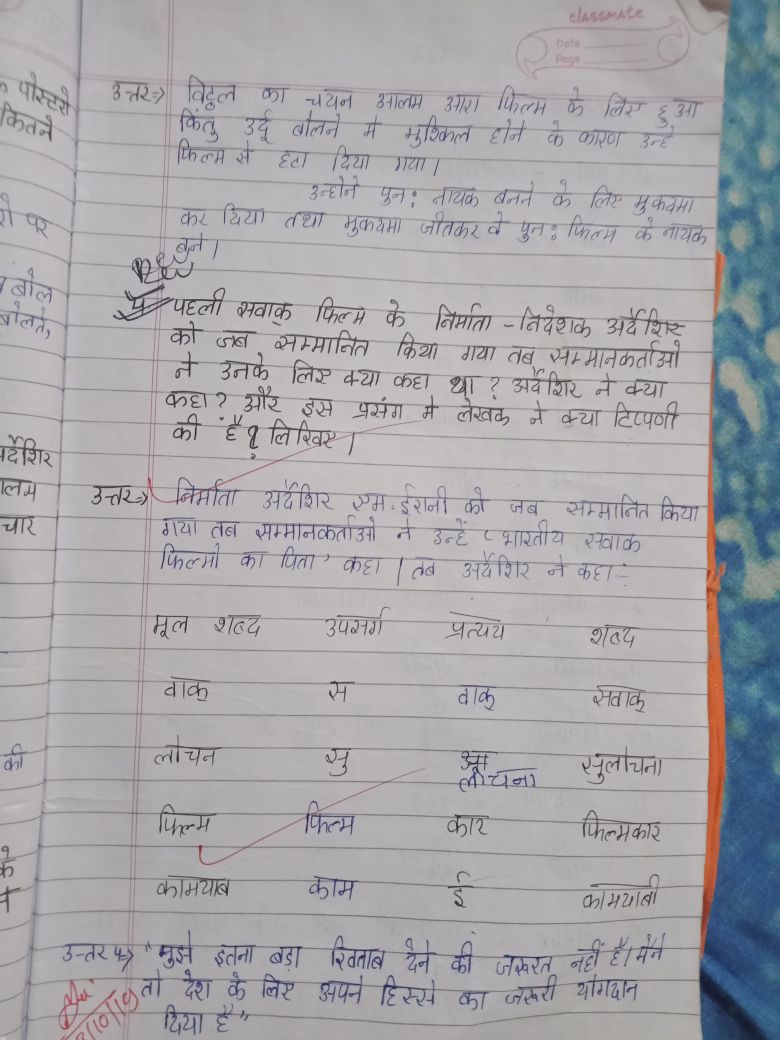 classmate
Date
Page
उत्तर⇒ विट्ठल का चयन आलम आरा फिल्म के लिए हुआ
किंतु उर्दू बोलने मे मुश्किल होने के कारण उन्हे
फिल्म से हटा दिया गया।
उन्होने पुनः नायक बनने के लिए मुकदमा
कर दिया तथा मुकदमा जीतकर वे पुनः फिल्म के नायक
बने।
पहली सवाक् फिल्म के निर्माता - निदेशक अर्देशिर
को जब सम्मानित किया गया तब सम्मानकर्ताओ
ने उनके लिए क्या कहा था? अर्देशिर ने क्या
कहा? और इस प्रसंग मे लेखक ने क्या टिप्पणी
की है? लिखिए।
उत्तर⇒ निर्माता अर्देशिर एम. ईरानी को जब सम्मानित किया
गया तब सम्मानकर्ताओ ने उन्हें 'भारतीय सवाक
फिल्मो का पिता' कहा। तब अर्देशिर ने कहा:-
मूल शब्द उपसर्ग प्रत्यय शब्द
वाक् स वाक् सवाक्
लोचन सु लोचना सुलोचना
फिल्म फिल्म कार फिल्मकार
कामयाब काम ई कामयाबी
उत्तर 4⇒ "मुझे इतना बड़ा खिताब देने की जरूरत नहीं है। मैंने
तो देश के लिए अपने हिस्से का जरूरी योगदान
दिया है"
पोस्टरो
कितने
पर
बोल
बोलते,
र्देशिर
लम
चार
की
के